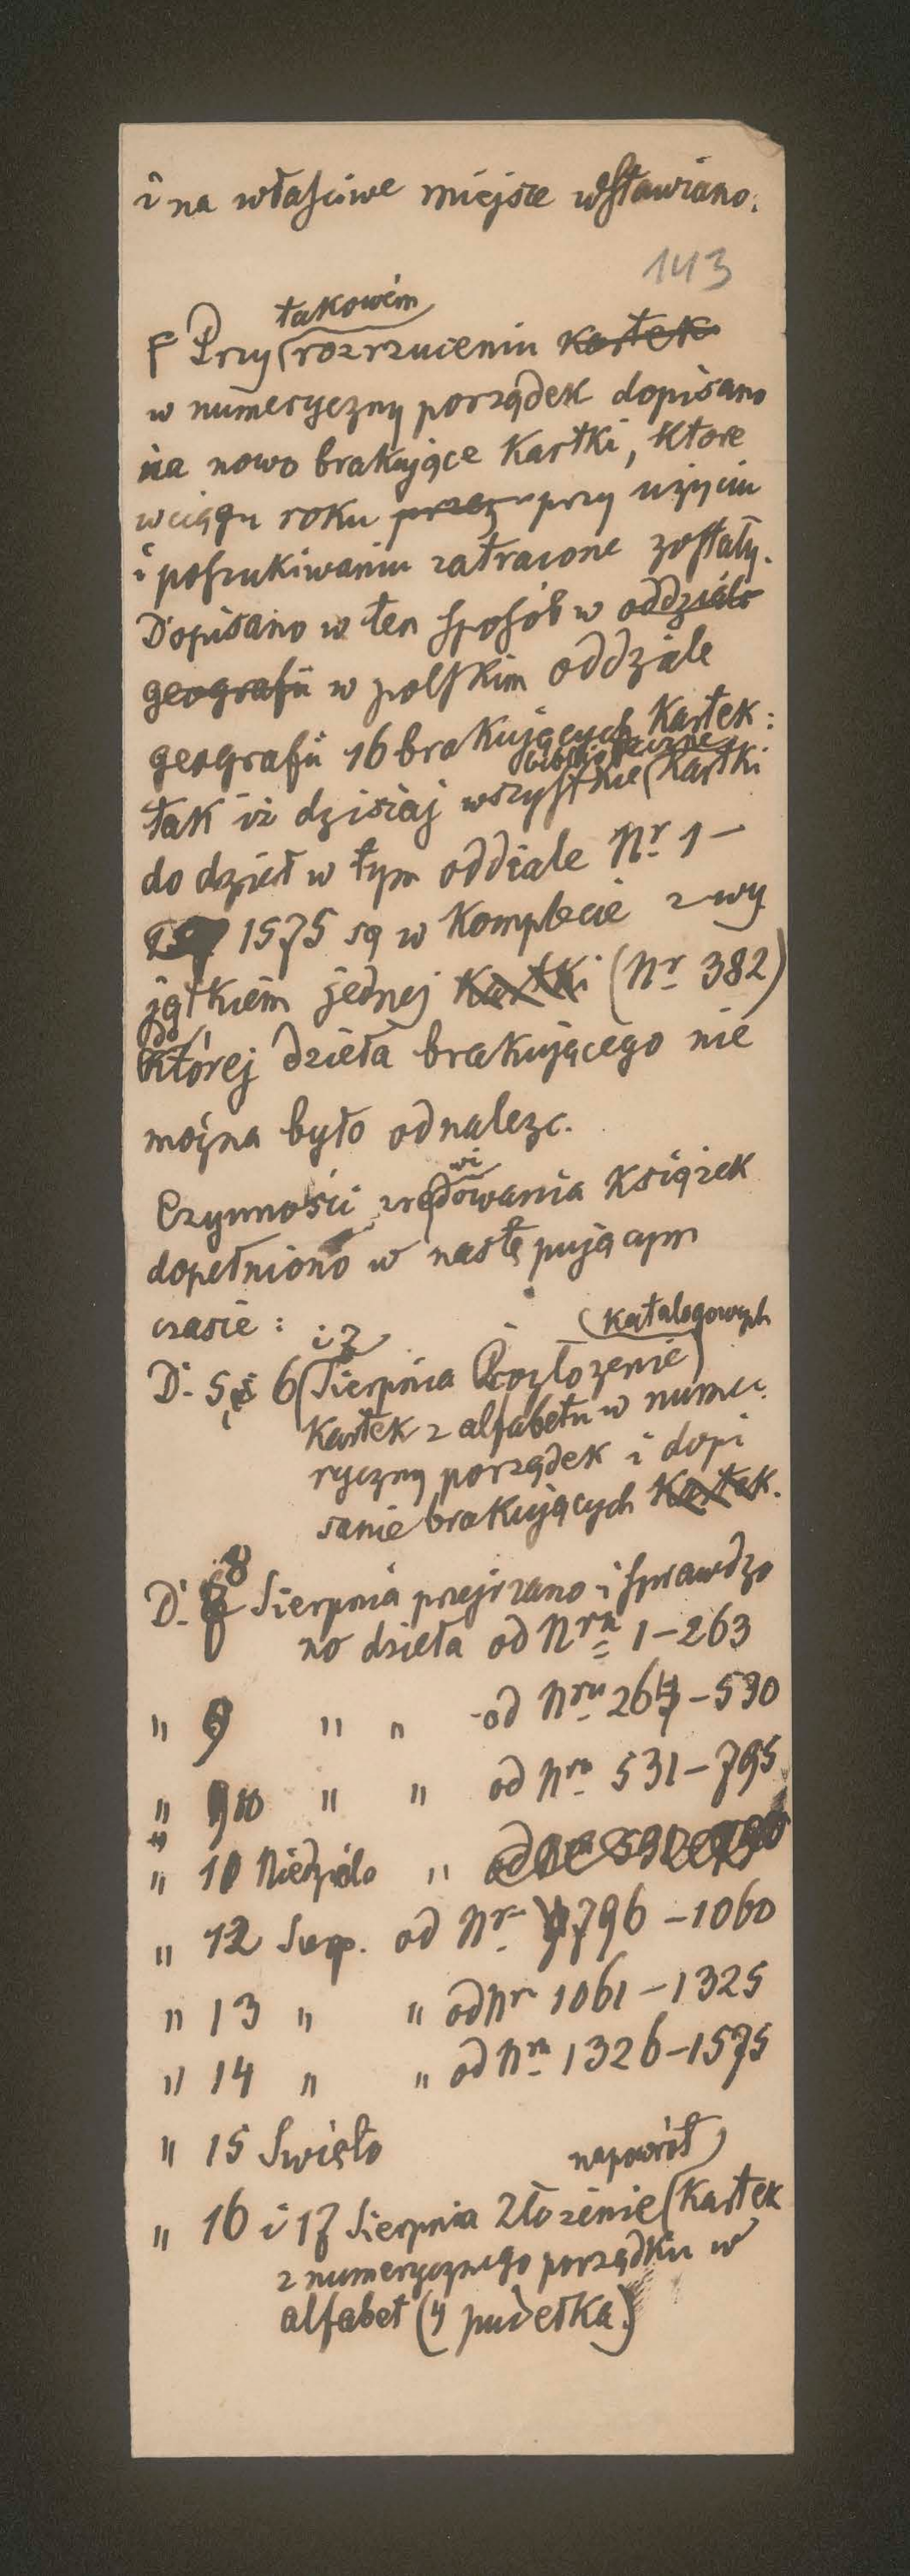 i na właściwe miejsce wstawiano.
143
takowém
Przy rozrzuceniu kartek
w numeryczny porządek dopisano
na nowo brakujące kartki, które
w ciągu roku przez przy użyciu
i poszukiwaniu zatracone zostały.
Dopisano w ten sposób w oddziale
geografii w polskim oddziale
geografii 16 brakujących kartek:
tak iż dzisiaj wszystkie kartki
do dzieł w tym oddiale Nr. 1 –
1575 są w komplecie z wy
jątkiem jednej kartki (Nr 382)
do
której dzieła brakującego nie
można było odnalezc.
wi
Czynności rewidowania książek
dopełniono w następującym
czasie :
katalogowych
i 7
D. 5, 6 Sierpnia Rozłożenie
kartek z alfabetu w nume
ryczny porządek i dopi
sanie brakujących kartek.
8
D. Sierpnia przejrzano i sprawdzo
no dzieła od Nru 1–263
" 9 " " od Nru 264–530
" 10 " " od Nro 531–795
" 11 Niedziela "
" 12 Sierp. od Nr 796–1060
" 13 " " od Nr 1061–1325
" 14 " " od Nru 1326–1575
" 15 Swięto
napowrót
" 16 i 17 Sierpnia Złożenie kartek
z numerycznego porządku w
alfabet (4 pudełka)